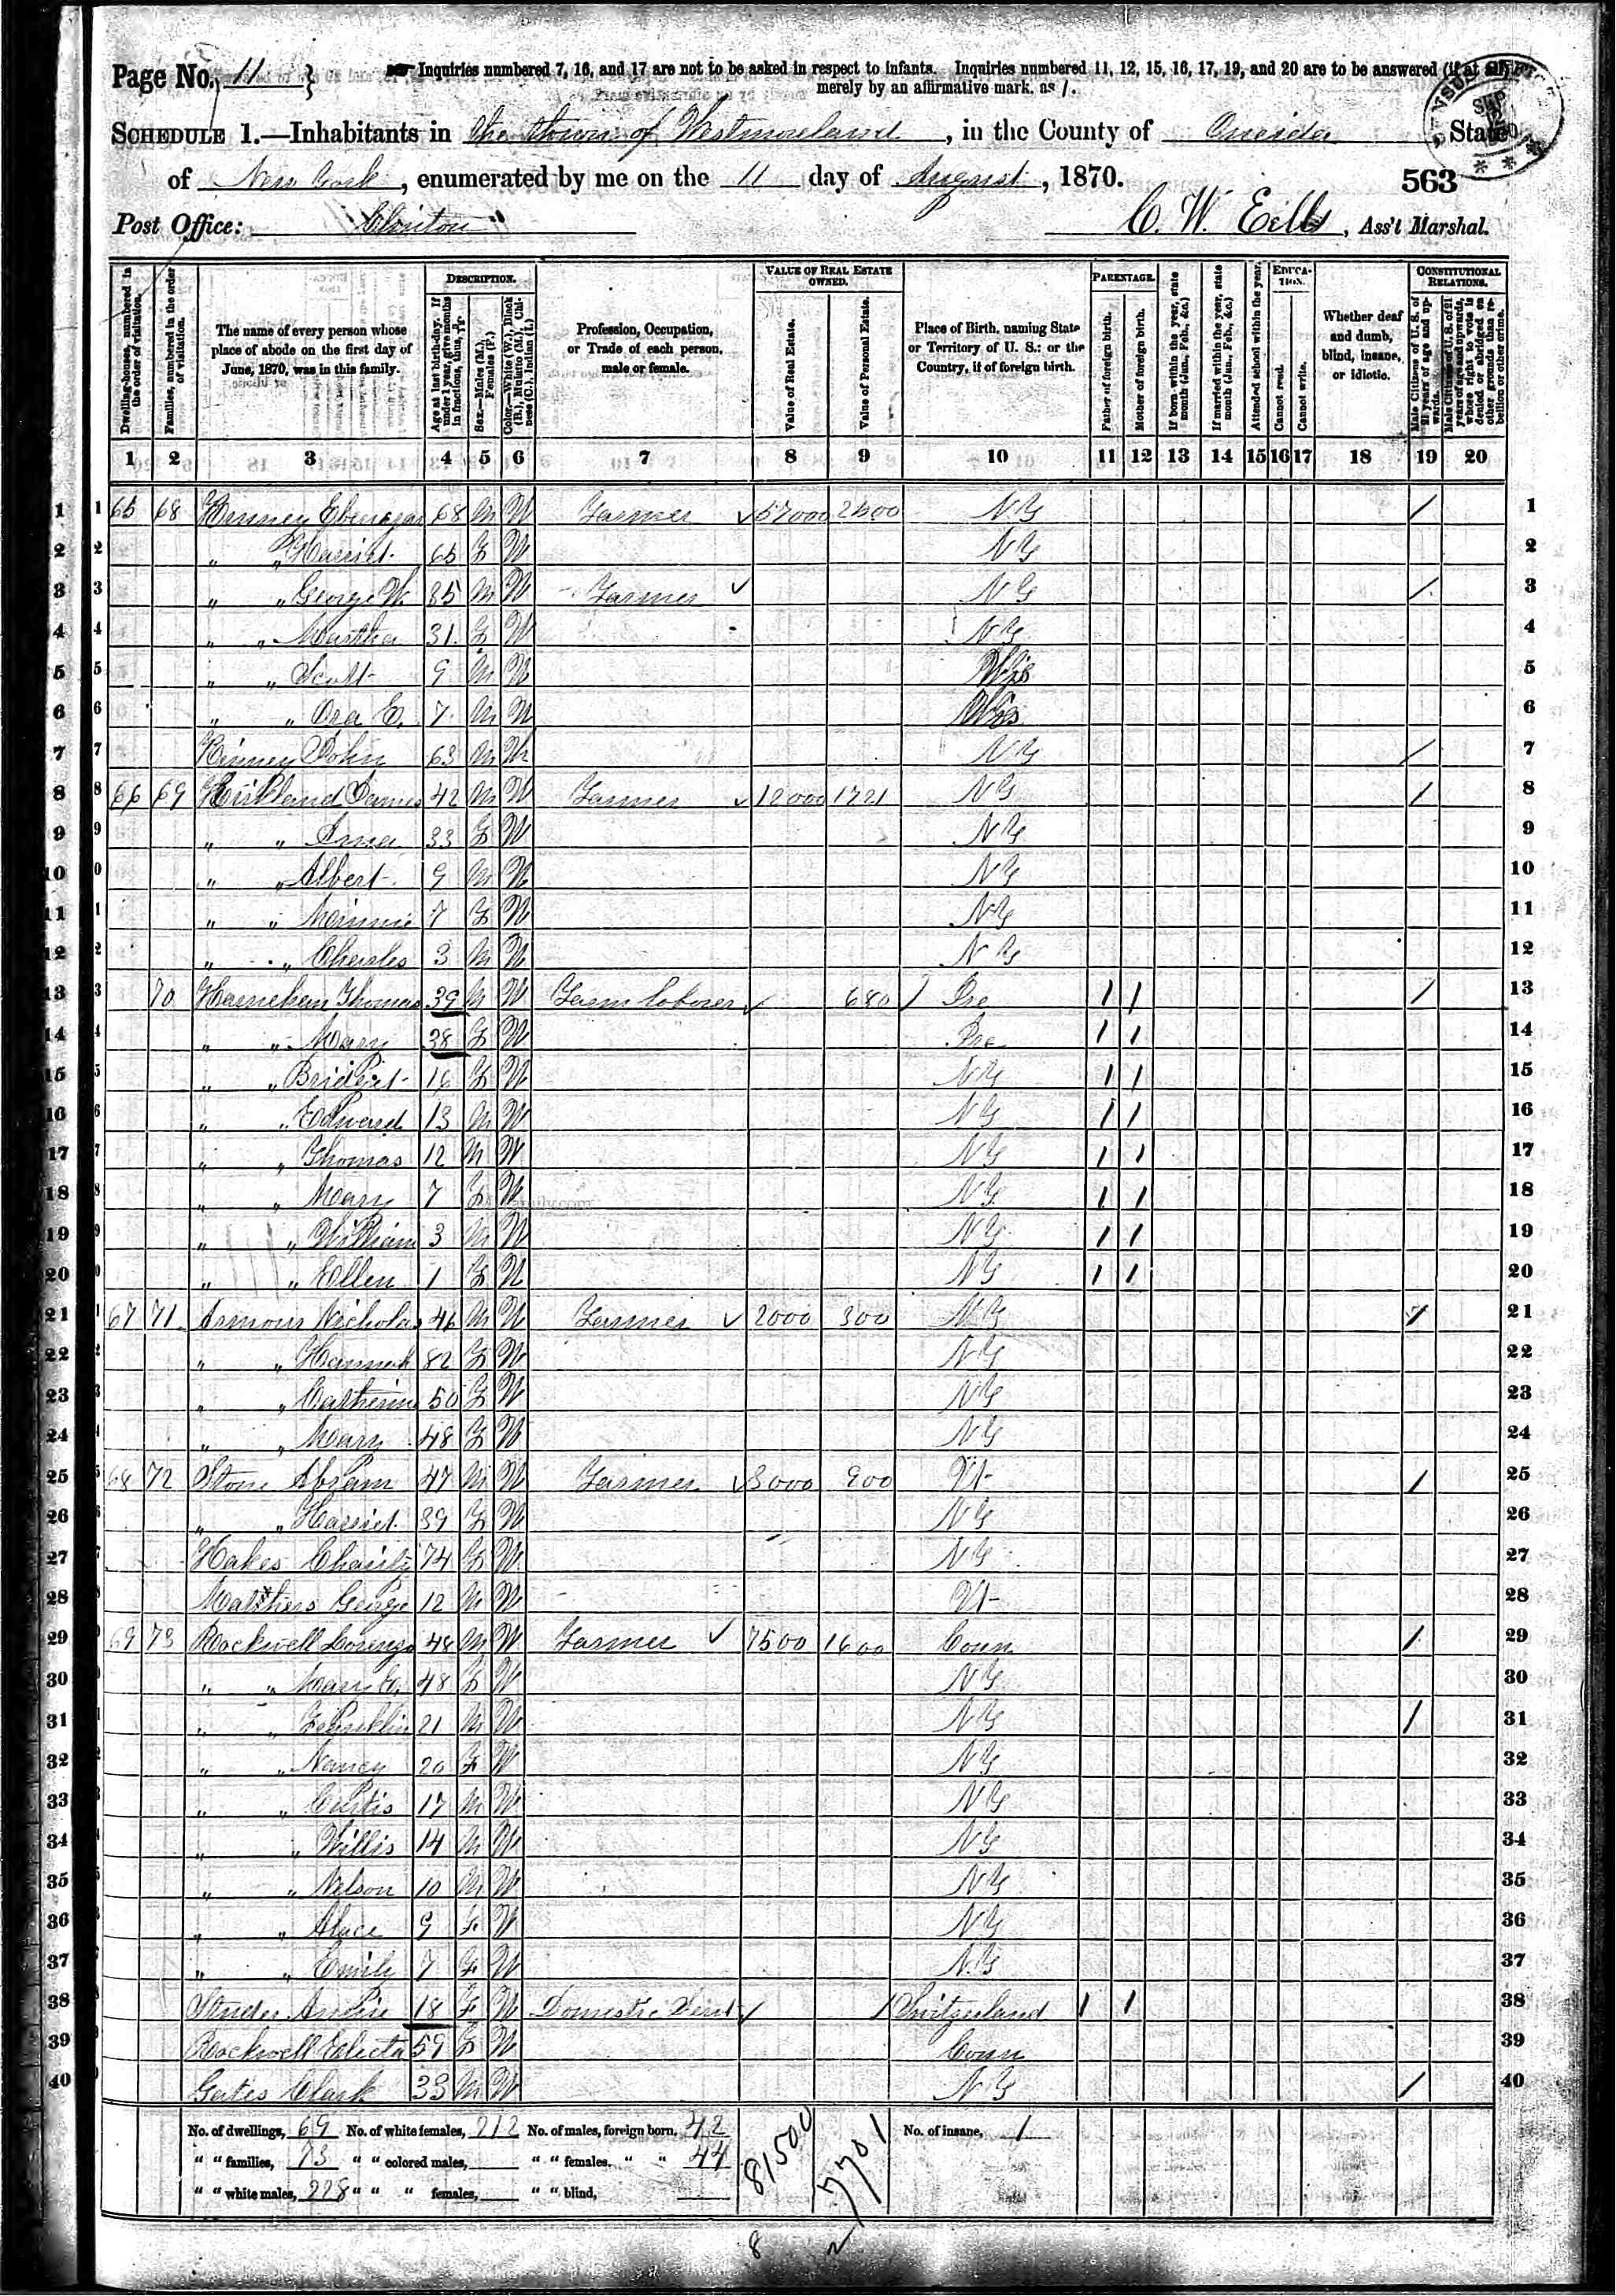 Page No. 11 } Inquiries numbered 7, 16, and 17 are not to be asked in respect to infants. Inquiries numbered 11, 12, 15, 16, 17, 19, and 20 are to be answered (if at all)
merely by an affirmative mark, as /.
SCHEDULE 1.—Inhabitants in the Town of Westmoreland, in the County of Oneida, State
of New York, enumerated by me on the 11 day of August, 1870. 563
Post Office: Clinton C. W. Eells, Ass't Marshal.
Dwelling-houses, numbered in the order of visitation.
Families, numbered in the order of visitation.
The name of every person whose place of abode on the first day of June, 1870, was in this family.
DESCRIPTION.
Age at last birth-day. If under 1 year, give months in fractions, thus,
Sex.—Males (M.), Females (F.)
Color.—White (W.), Black (B.), Mulatto (M.), Chinese (C.), Indian (I.)
Profession, Occupation, or Trade of each person, male or female.
VALUE OF REAL ESTATE OWNED.
Value of Real Estate.
Value of Personal Estate.
Place of Birth, naming State or Territory of U. S.; or the Country, if of foreign birth.
PARENTAGE.
Father of foreign birth.
Mother of foreign birth.
If born within the year, state month (Jan., Feb., &c.)
If married within the year, state month (Jan., Feb., &c.)
Attended school within the year.
EDUCATION.
Cannot read.
Cannot write.
Whether deaf and dumb, blind, insane, or idiotic.
CONSTITUTIONAL RELATIONS.
Male Citizens of U. S. of 21 years of age and upwards.
Male Citizens of U. S. of 21 years of age and upwards, whose right to vote is denied or abridged on other grounds than rebellion or other crime.
1 2 3 4 5 6 7 8 9 10 11 12 13 14 15 16 17 18 19 20
1 65 68 Kinney Ebenezar 68 M W Farmer 57000 2500 N Y / 1
2 " " Harriet 65 F W N Y 2
3 " " George W. 35 M W Farmer N Y / 3
4 " " Martha 31 F W N Y 4
5 " " Scott 9 M W Wis 5
6 " " Ora E. 7 M W Wis 6
7 Kinney John 63 M W N Y / 7
8 66 69 Kirkland James 42 M W Farmer 12000 1721 N Y / 8
9 " " 33 F W N Y 9
10 " " Albert 9 M W N Y 10
11 " " Minnie 7 F W N Y 11
12 " " Charles 3 M W N Y 12
13 70 Thomas 39 M W Farm laborer 680 / Ire / / / 13
14 " " Mary 38 F W Ire / / 14
15 " " Bridget 16 F W N Y / / 15
16 " " Edward 13 M W N Y / / 16
17 " " Thomas 12 M W N Y / / 17
18 " " Mary 7 F W N Y / / 18
19 " " William 3 M W N Y / / 19
20 " " Ellen 1 F W N Y / / 20
21 67 71 Armour Nicholas 46 M W Farmer 2000 300 N Y / 21
22 " " Hannah 82 F W N Y 22
23 " " Catherine 50 F W N Y 23
24 " " Mary 48 F W N Y 24
25 68 72 Stone Abram 47 M W Farmer 3000 900 Vt / 25
26 " " Harriet 39 F W N Y 26
27 Hakes Charity 74 F W N Y 27
28 Matthers George 12 M W Vt 28
29 69 73 Rockwell Lorenzo 48 M W Farmer 7500 1600 Conn / 29
30 " " Mary E. 48 F W N Y 30
31 " " Franklin 21 M W N Y / 31
32 " " Nancy 20 F W N Y 32
33 " " Curtis 17 M W N Y 33
34 " " Willis 14 M W N Y 34
35 " " Nelson 10 M W N Y 35
36 " " Alace 9 F W N Y 36
37 " " Emily 7 F W N Y 37
38 Studer 18 F W Domestic Servt / Switzerland / / 38
39 Rockwell Electa 59 F W Conn 39
40 Gates Clark 33 M W N Y / 40
No. of dwellings, 69 No. of white females, 212 No. of males, foreign born, 42 81500 7701 No. of insane, 1
" " families, 73 " " colored males, " " females, " " 44
" " white males, 228 " " " females, " " blind,